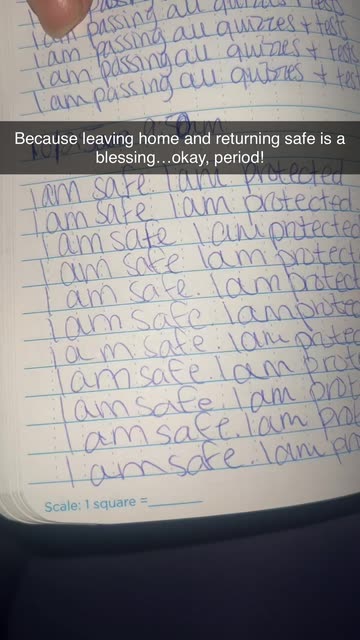 I am passing all quizzes + tests
I am passing all quizzes + tests
I am passing all quizzes + tests
I am passing all quizzes +
Because leaving home and returning safe is a
blessing…okay, period!
I am safe. I am protected
I am safe. I am protected
I am safe. I am protected
I am safe. I am protected
I am safe. I am protected
I am safe. I am prote
I am safe. I am protec
I am safe. I am prot
I am safe. I am pro
I am safe. I am pro
I am safe. I am pr
Scale: 1 square =______